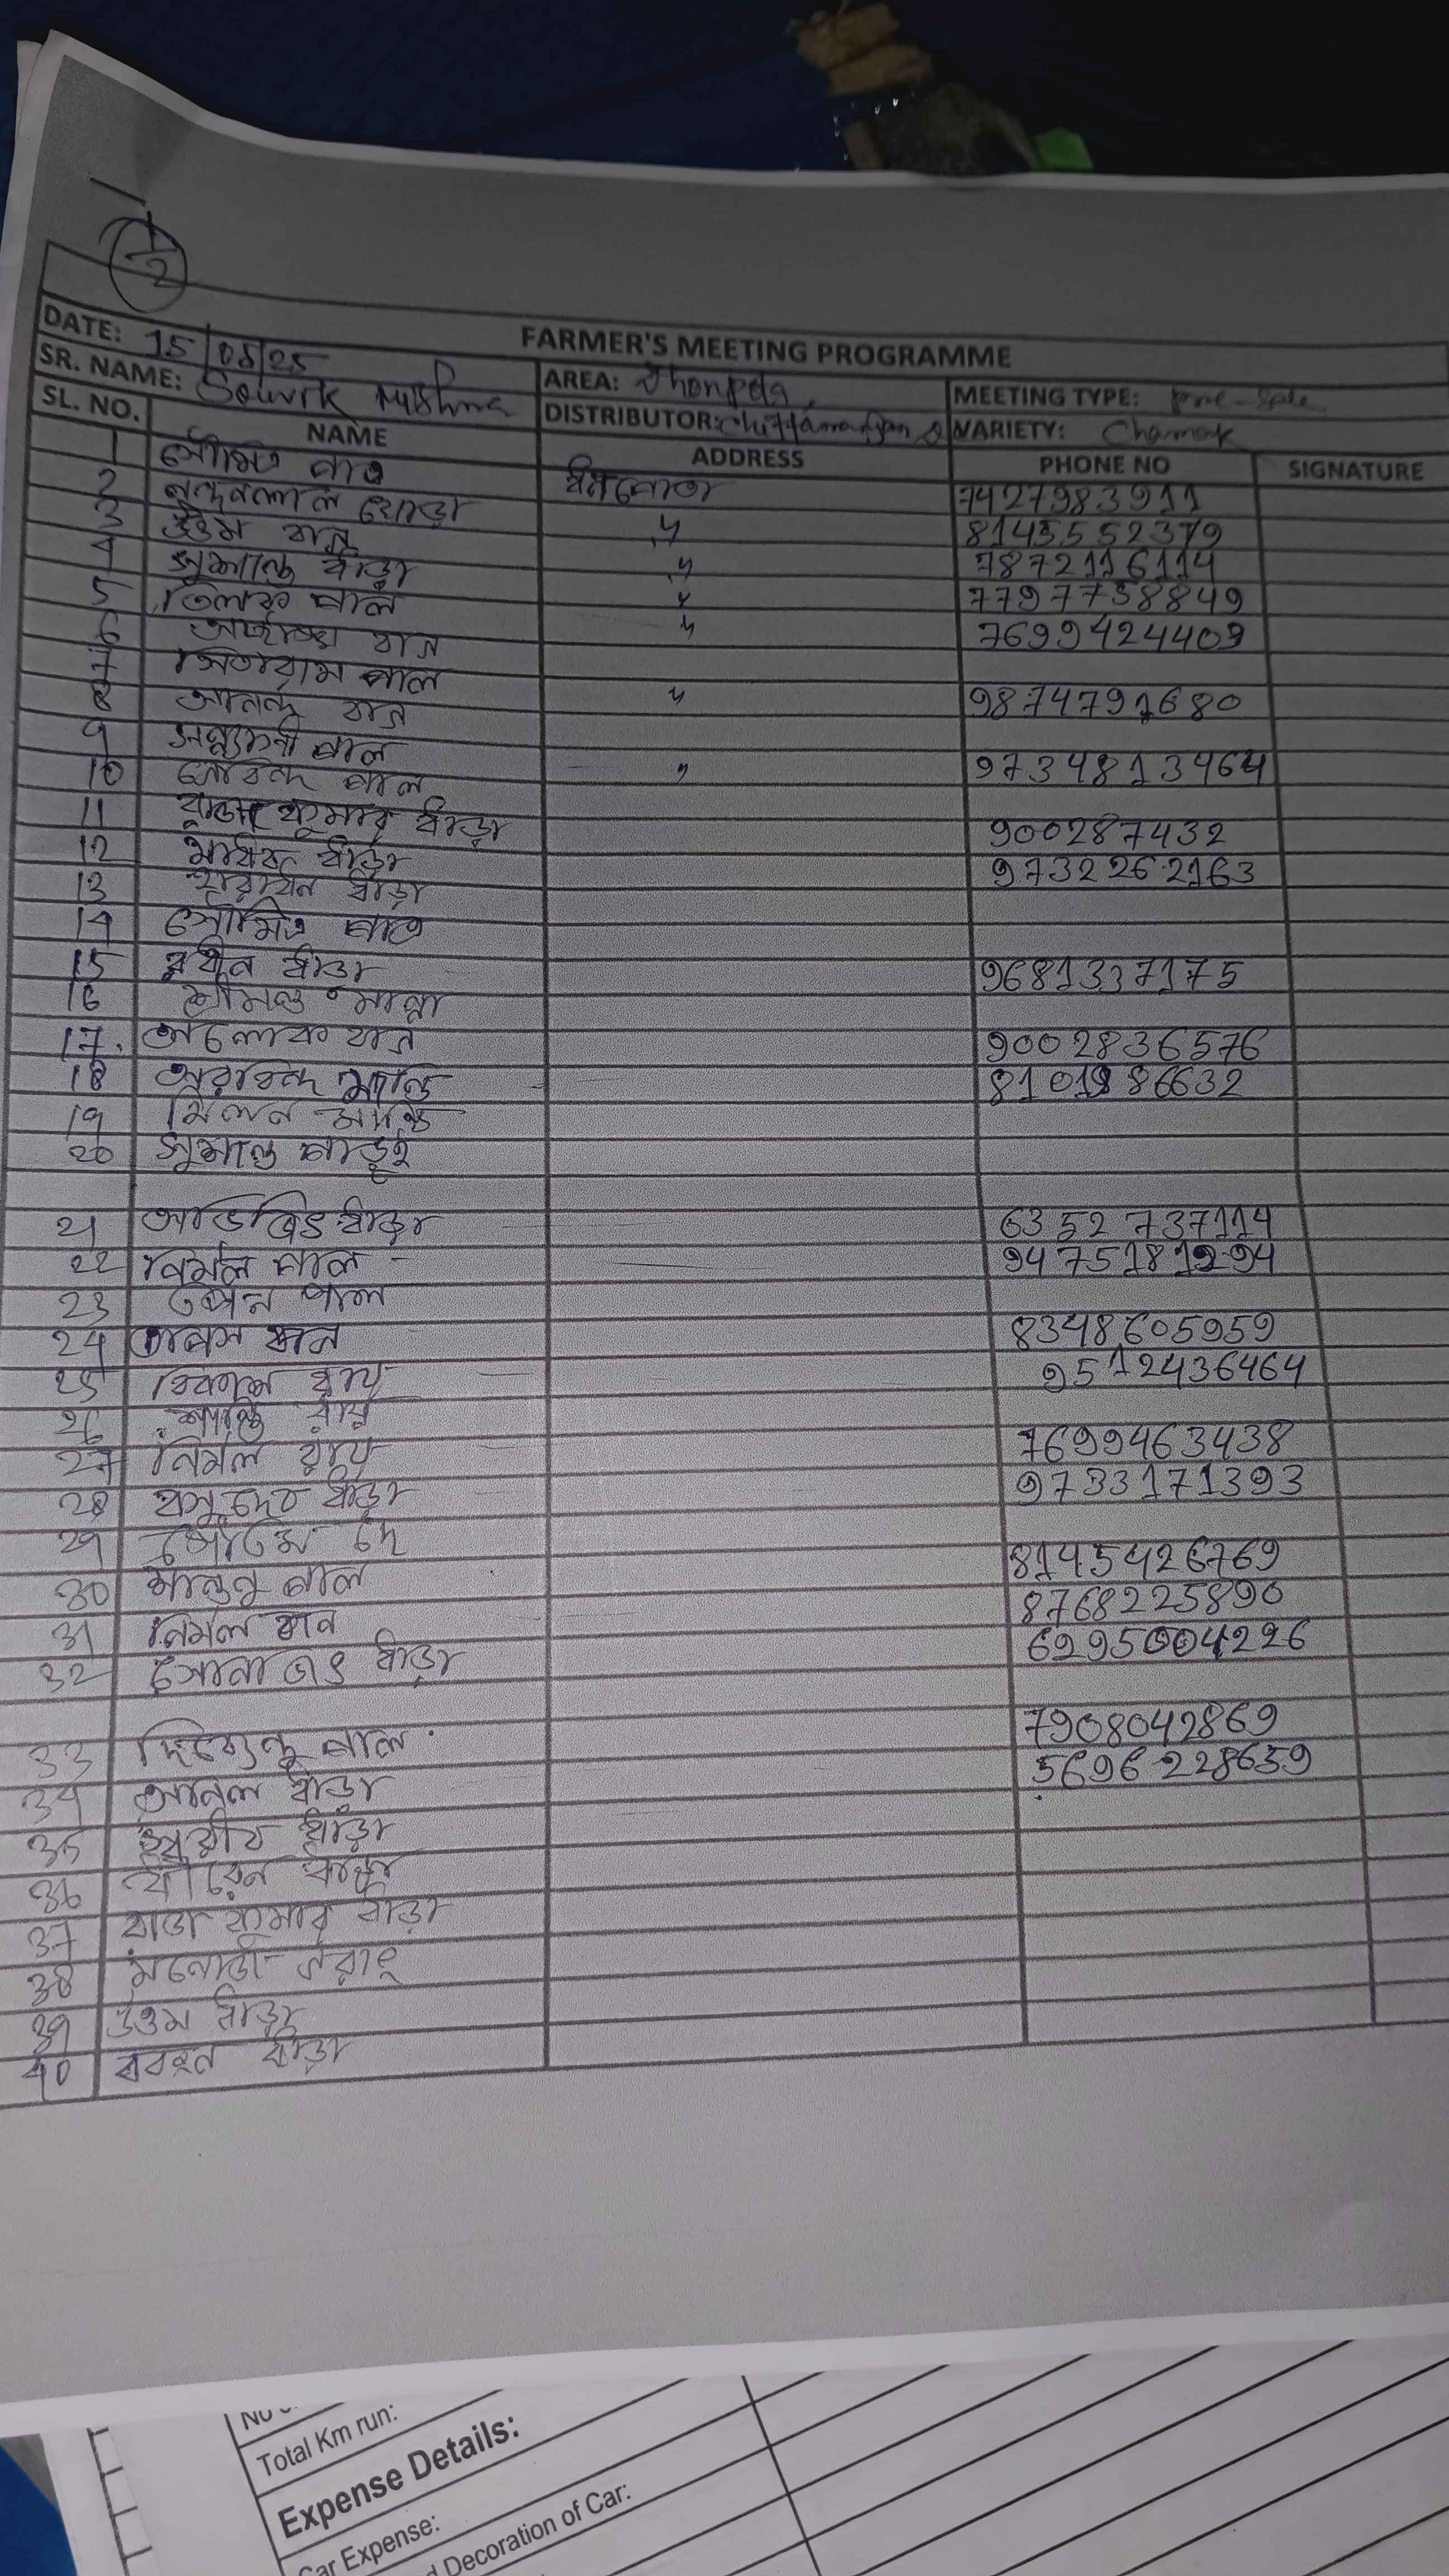 1/2
FARMER'S MEETING PROGRAMME
DATE: 15/05/25
SR. NAME: Souvik Mishra
AREA:
MEETING TYPE: Pre-Sale
DISTRIBUTOR: Chittaranjan
VARIETY: Chamak
SL. NO. NAME ADDRESS PHONE NO SIGNATURE
1 সৌমিত পাত্র 7427983911
2 নন্দদুলাল ঘোড়া " 8145552379
3 উত্তম খান " 7872116114
4 সুশান্ত ধাঁড়া " 7797738849
5 তিলক পাল " 7699424409
6 খান
7 সিতারাম পাল " 9874791680
8 আনন্দ খান
9 সন্ন্যাসী পাল " 9734813464
10 গোবিন্দ পাল
11 রাজা কুমার ধাঁড়া 900287432
12 ধাঁড়া 9732262163
13 হারাধন ধাঁড়া
14 সৌমিত পাত্র
15 রথীন ধাঁড়া 9681337175
16 শ্রীমন্ত মান্না
17. অলোক খান 9002836576
18 অরবিন্দ মান্ডি 8101986632
19 মিলন মান্ডি
20 সুশান্ত পাড়ুই
21 অভিজিৎ ধাঁড়া 6352737114
22 নির্মল পাল 9475181294
23 স্বপন পাল
24 তাপস খান 8348605959
25 বিকাশ রায় 9512436464
26 শান্তি রায়
27 নির্মল রায় 7699463438
28 বাসুদেব ধাঁড়া 9733171393
29 গৌতম দে
30 শান্তনু পাল 8145426769
31 নির্মল খান 8768225890
32 সোনাজিৎ ধাঁড়া 6295004226
33 দিব্যেন্দু পাল 7908042869
34 অনিল ধাঁড়া 5696228659
35 ধাঁড়া
36 ধীরেন ধাঁড়া
37 রাজা কুমার ধাঁড়া
38 মনোজ
39 উত্তম ধাঁড়া
40 ধাঁড়া
Total Km run:
Expense Details:
Car Expense:
Decoration of Car: